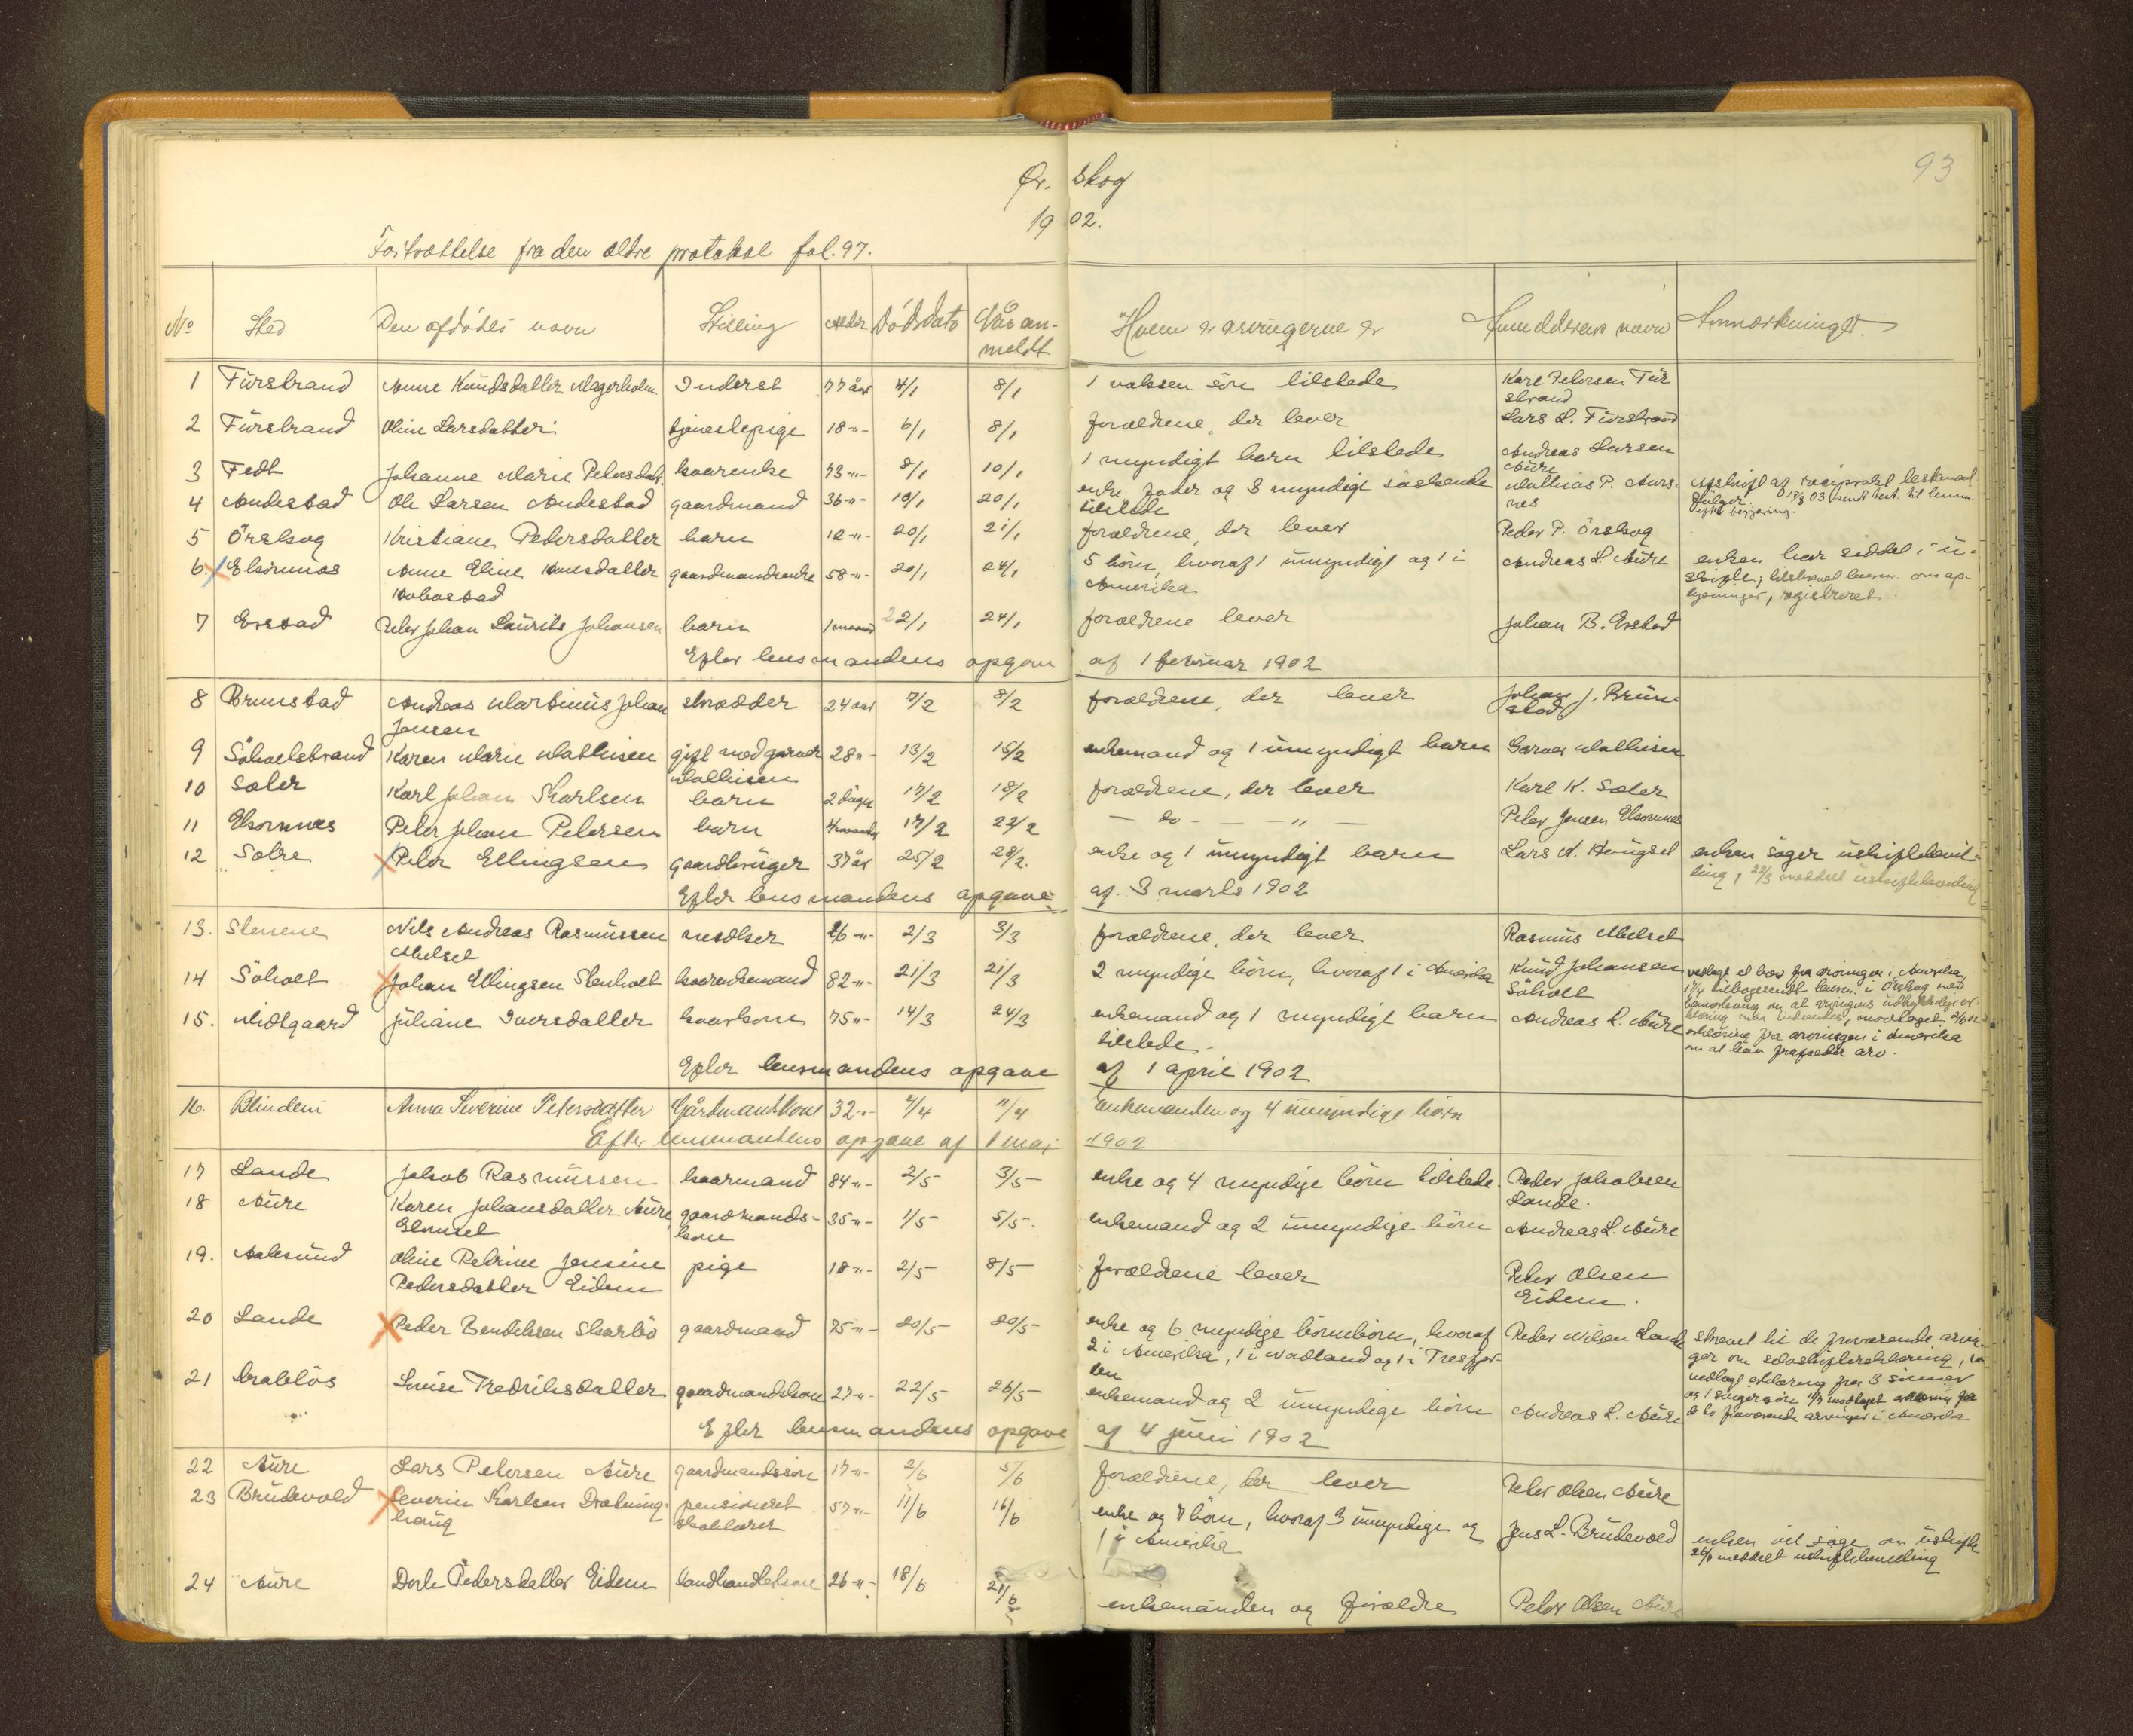 93
Ør. skog
1902.
Fortsættelse fra den ældre protokol fol. 97.
No Sted Den afdødes navn Stilling Alder Dödsdato Når an-meldt Hvem er arvingerne Anmelderens navn Anmærkninger
1 Fürstrand Anne Knüdsdatter Magerholm Inderst 77 år 4/1 8/1 1 voksen sön tilstede Karl Petersen Fürstrand
2 Fürstrand Oline Larsdatter tjenestepige 18 -"- 6/1 8/1 forældrene, der lever Lars L. Fürstrand
3 Fedt Johanne Marie Petersdatt. kaarenke 73 -"- 8/1 10/1 1 myndigt barn tilstede Andreas Larsen Aure
4 Andestad Ole Larsen Andestad gaardmand 36 -"- 10/1 20/1 enke, fader og 3 myndige söskende tilstede Mathias P. Aursnes Afskrift af reciprokt testament følger. 18/8 03 sendt test. til lensm. efter begjæring.
5 Örskog Kristiane Pedersdatter barn 12 -"- 20/1 21/1 forældrene, der lever Peder P. Örskog
6 Ekornnæs Anne Eline Knusdatter gaardmandsenke 58 -"- 20/1 24/1 5 börn, hvoraf 1 ümyndigt og 1 i Amerika Andreas L. Aüre enken har siddet i ü-
skifte; tilskrevet lensm. om op-
lysninger, registreret
7 Erstad Peter Johan Laürits Johansen barn 1 maaned 22/1 24/1 forældrene lever Johan B. Erstad
Efter lensmandens opgave af 1 februar 1902
8 Brunstad Andreas Martinius Johan Jensen skrædder 24 aar 7/2 8/2 forældrene, der lever Johan J. Brünstad
9 Söholtstrand Karen Marie Mathisen gift med garver Mathisen 28 -"- 13/2 15/2 enkemand og 1 ümyndigt barn Garver Mathisen
10 Sæter Karl Johan Karlsen barn 2 dage 17/2 18/2 forældrene, der lever Karl K. Sæter
11 Ekornnes Peter Johan Petersen barn 4 maaneder 17/2 22/2 — do — — " — Peter Jensen Ekornnes
12 Solre Peter Ellingsen gaardbrüger 37 år 25/2 28/2. enke og 1 ümyndigt barn Lars K. Haugset enken söger üskiftebevil-
ling, 22/3 meddelt üskiftebevilling
Efter lensmandens opgave af 3 marts 1902
13. Stenene Nils Andreas Rasmüssen Melset 26 -"- 2/3 3/3 forældrene, der lever Rasmüs Melset
14 Söholt Johan Ellingsen Stenholt kaarenkemand 82 -"- 21/3 21/3 2 myndige börn, hvoraf 1 i Amerika Knüd Johansen Söholt vedlagt et brev fra arvingen i Amerika,
17/4 tilbagesendt lensm. i Örskog med
bemærkning om at arvingens
modtaget 2/6 02
erklæring fra arvingen i Amerika
om at han frafalder arv.
15. Midtgaard Jüliane Iversdatter kaarkone 75 -"- 14/3 24/3 enkemand og 1 myndigt barn tilstede. Andreas L. Aüre
Efter lensmandens opgave af 1 april 1902
16. Blindem Anna Severine Petersdatter Gårdmandskone 32 -"- 7/4 11/4 Enkemanden og 4 ümyndige börn
Efter lensmandens opgave af 1 mai 1902
17 Lande Jakob Rasmüssen kaarmand 84 -"- 2/5 3/5 enke og 4 myndige börn tilstede. Peder Jakobsen Lande.
18 Aüre Karen Johansdatter Aüre gaardmands-kone 35 -"- 1/5 5/5. enkemand og 2 ümyndige börn Andreas L. Aüre
19. Aalesünd Oline Petrine Jensine Pedersdatter Eidem pige 18 -"- 2/5 8/5 forældrene lever Peder Olsen Eidem.
20 Lande Peder Bendiksen Skarbö gaardmand 75 -"- 20/5 20/5 enke og 6 myndige börnebörn, hvoraf 2 i Amerika, 1 i Nordland og 1 i Tresfjorden Peder Nilsen Lande skrevet til de fraværende arvin-
ger om selvskifteerklæring,
vedlagt erklæring fra 3 sönner
og 1 svigersön modtaget erklæring fra
de to fraværende arvinger i Amerika
21 Kraklös Lovise Fredriksdatter gaardmandskone 27 -"- 22/5 26/5 enkemand og 2 ümyndige börn Andreas L. Aüre
Efter lensmandens opgave af 4 jüni 1902
22 Aüre Lars Petersen Aüre gaardmandssön 17 -"- 2/6 5/6 forældrene, der lever Peter Olsen Aüre
23 Brüdevold Severin Karlsen Drabninghaüg pensioneret skolelærer 57 -"- 11/6 16/6 enke og 7 börn, hvoraf 3 ümyndige og 1 i Amerika Jens L. Brüdevold enken vil söge om üskifte
26/6 meddelt uskiftebevilling
24 Aüre Dorte Pedersdatter Eidem landhandlerkone 26 -"- 18/6 21/6 enkemanden og forældre Peter Olsen Aüre